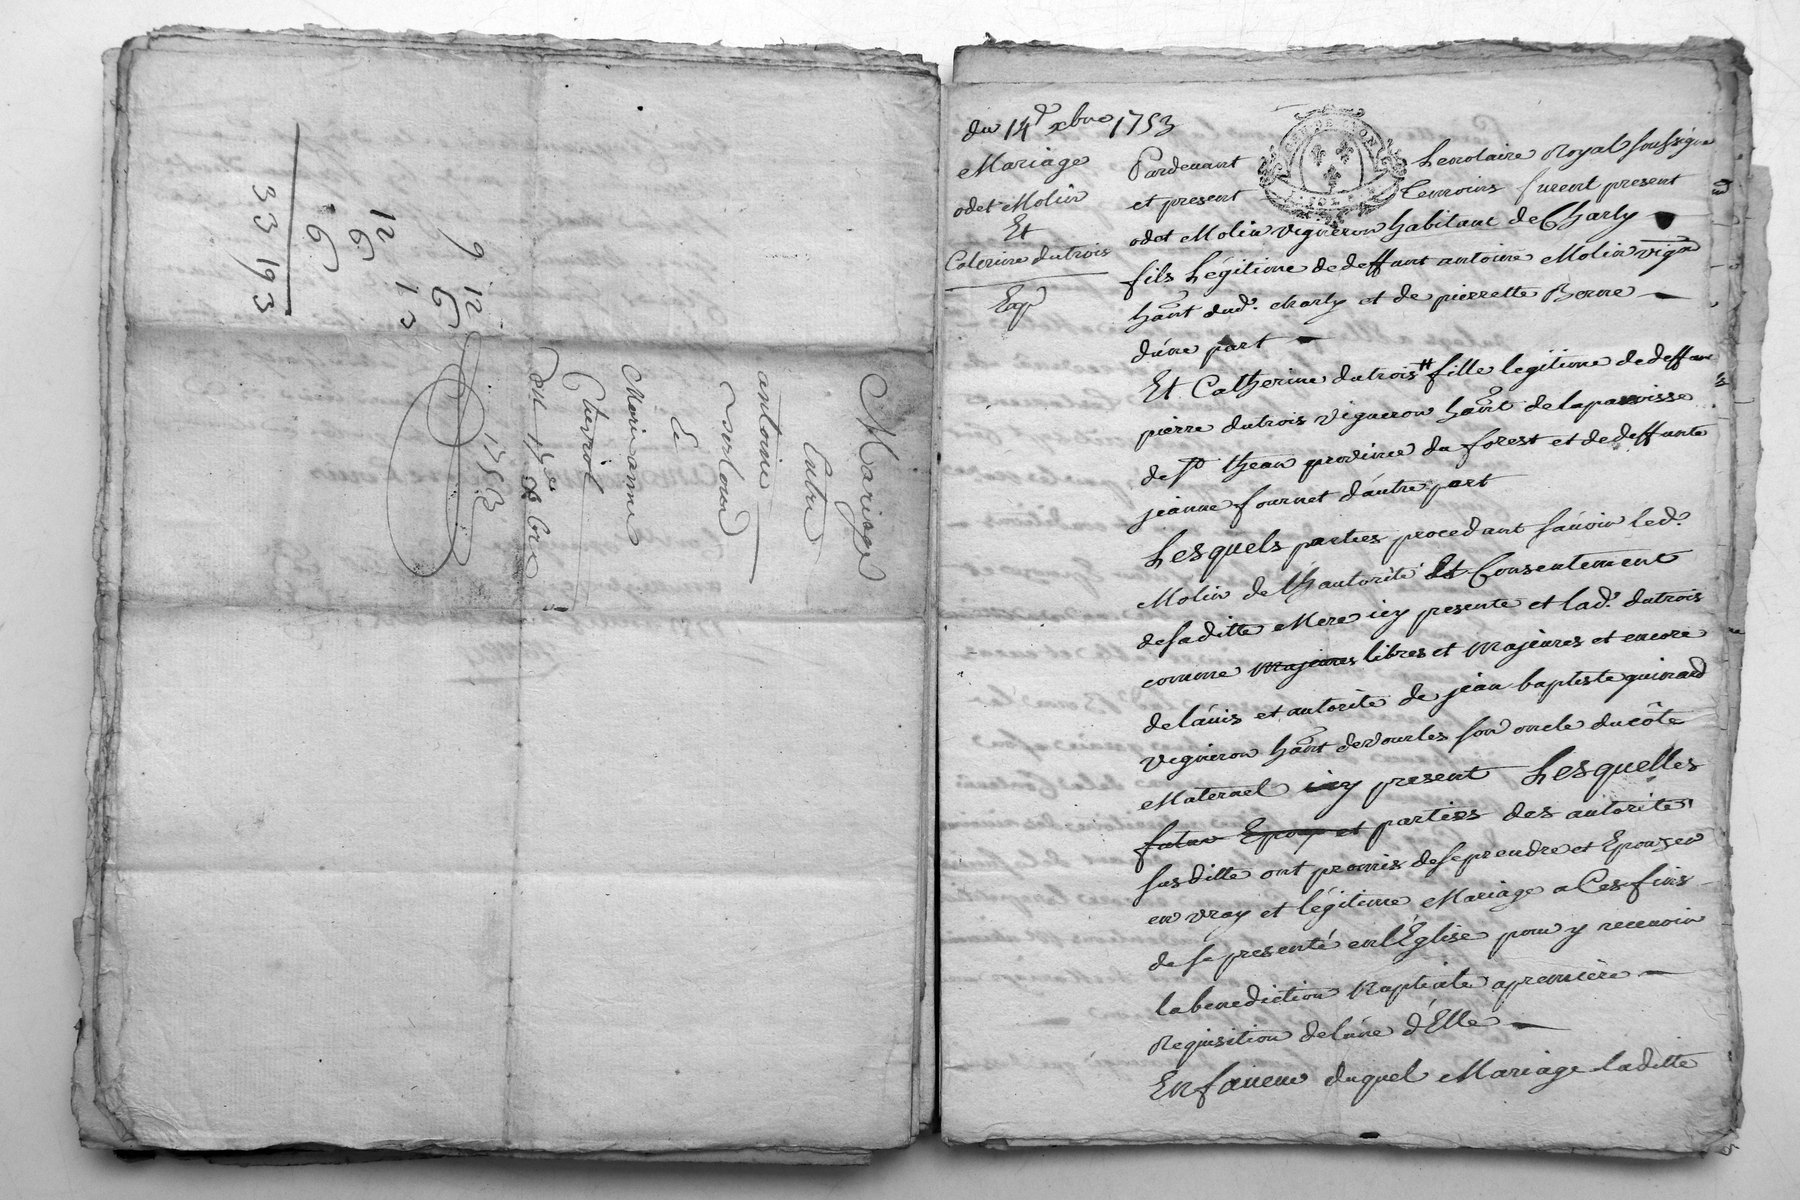 Mariage
Entre
antoine
&
Marie anne
Chevrol
1753
9 12 6
12 6 13
6
33 19 3
du 14e xbre 1753
Mariage
odet Molin
Et
Caterine dutrois
Exp
GEN DE LYON
Pardeuant Le notaire Royal soussigne
et present Temoins furent present
odet Molin vigneron habitant de Charly
fils Légitime de deffunt antoine Molin vigon
hant dud. charly et de pierrette Berne
dúne part
Et Catherine dutrois # fille legitime de deffun
pierre dutrois vigneron hant de la paroisse
de St Jean province du forest et de deffunte
jeanne fournet dáutre part
Lesquels parties procedant sáuoir led.
Molin de l'hautorité Et Consentement
de sa ditte Mere icy presente et lad. dutrois
comme majeures libres et majeures et encore
de láuis et autorité de jean baptiste guinard
vigneron hant de Vourles son oncle du côté
Maternel icy present Lesquelles
futur Epoux et parties des autorité
susditte ont promis de se prendre et Epouser
en vray et légitime Mariage a Ces fins
de se presenté en l'Église pour y receuoir
la benediction Nuptiale a premiére
Requisition de lúne d'Elle
En faueur duquel Mariage laditte